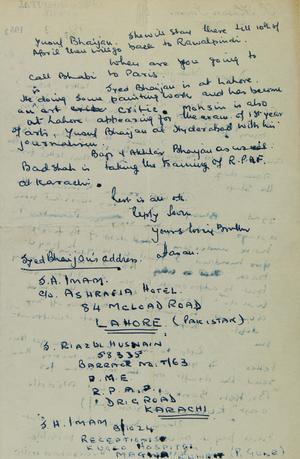 Yusuf Bhaijan. She will stay there till 10th of
April then will go back to Rawalpindi.
When are you going to
call Bhabi to Paris.
Syed Bhaijan is at Lahore.
He doing some painting work and has become
an art critic. Mohsin is also
at Lahore appearing for the exam of 1st year
of arts. Yusuf Bhaijan at Hyderabad with his
journalism.
Baji & Akhtar Bhaijan as usual.
Badshah is taking the training of R.P.A.F.
at Karachi.
Rest is all ok.
Reply soon
Yours loving Brother
Hasan.
Syed Bhaijan's address.
S.A. IMAM.
c/o. ASHRAFIA HOTEL.
84 MCLEOD ROAD
LAHORE (PAKISTAN)
S. RIAZUL HUSNAIN
58335
BARRACK No. T/63
R.P.A.F.,
DRIG ROAD
KARACHI
S.H. IMAM
RECEPTIONIST